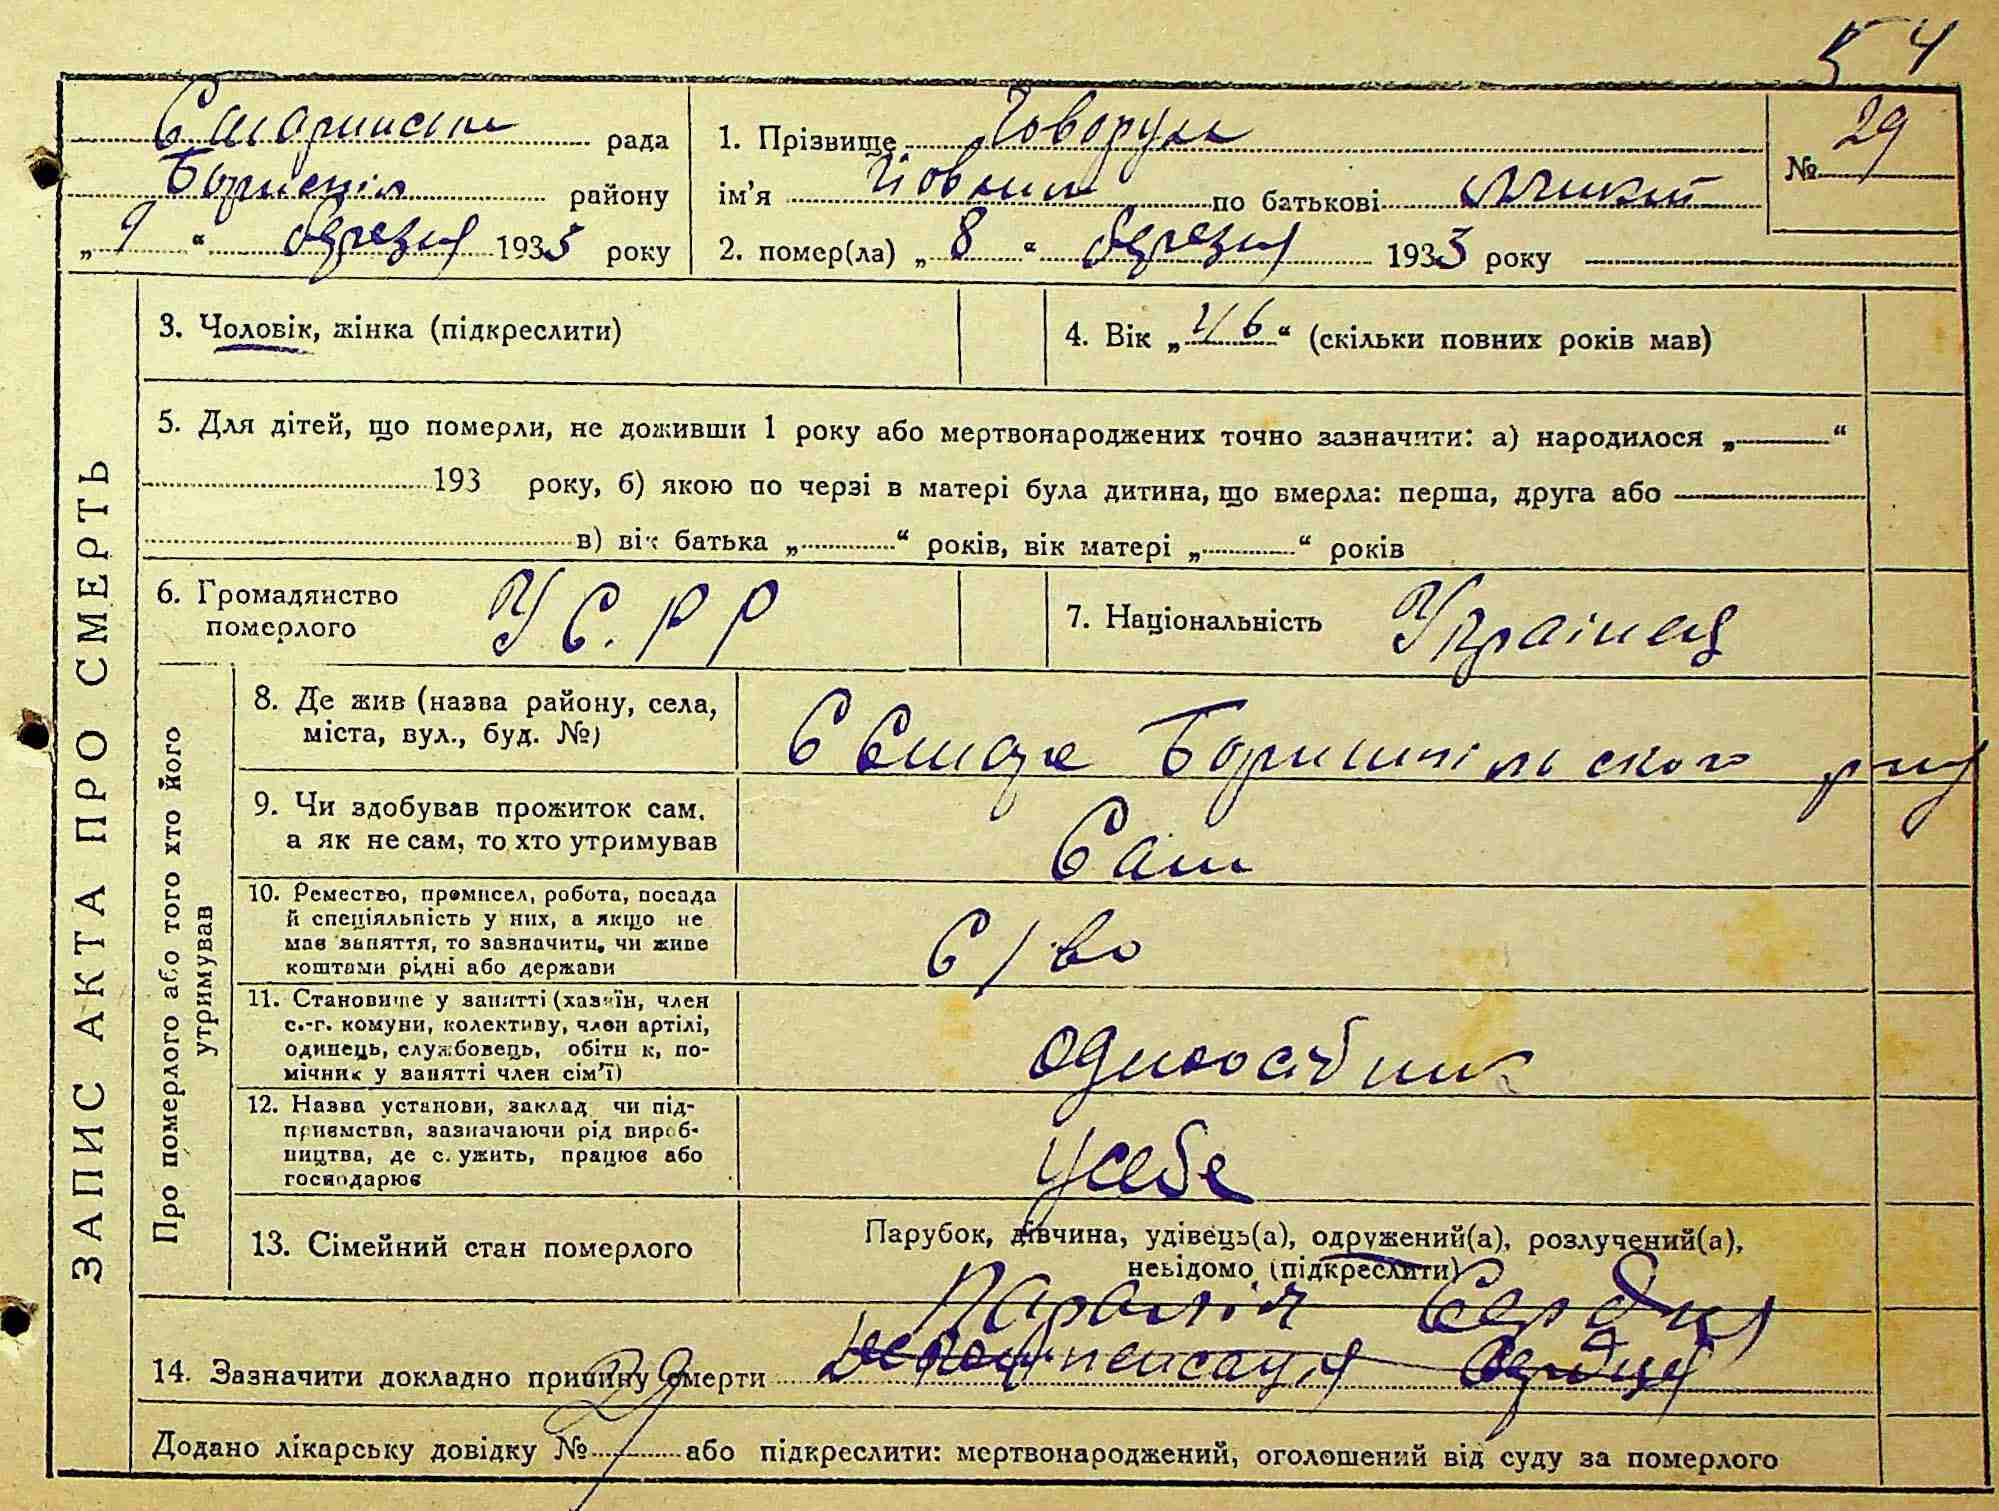 54
рада
Бориспіль району
„ 9 “ березня 1933 року
1. Прізвище Говорун
ім’я по батькові
2. помер(ла) „ 8 “ березня 1933 року
№ 29
ЗАПИС АКТА ПРО СМЕРТЬ
3. Чоловік, жінка (підкреслити)
4. Вік „ 46 “ (скільки повних років мав)
5. Для дітей, що померли, не доживши 1 року або мертвонароджених точно зазначити: а) народилося „ “
193 року, б) якою по черзі в матері була дитина, що вмерла: перша, друга або
в) вік батька „ “ років, вік матері „ “ років
6. Громадянство
померлого
УСРР
7. Національність Українец
Про померлого або того хто його
утримував
8. Де жив (назва району, села,
міста, вул., буд. №)
Бориспільського р-ну
9. Чи здобував прожиток сам,
а як не сам, то хто утримував
Сам
10. Ремество, промисел, робота, посада
й спеціяльність у них, а якщо не
має заняття, то зазначити, чи живе
коштами рідні або держави
С/во
11. Становище у занятті (хазяїн, член
с.-г. комуни, колективу, член артілі,
одинець, службовець, обітник, по-
мічник у занятті член сім’ї)
одноосібник
12. Назва установи, заклад чи під-
приємства, зазначаючи рід вироб-
ництва, де служить, працює або
господарює
У себе
13. Сімейний стан померлого
Парубок, дівчина, удівець(а), одружений(а), розлучений(а),
невідомо (підкреслити)
Параліч Сердця
14. Зазначити докладно причину смерти Декомпенсація Сердця
Додано лікарську довідку № 29 або підкреслити: мертвонароджений, оголошений від суду за померлого